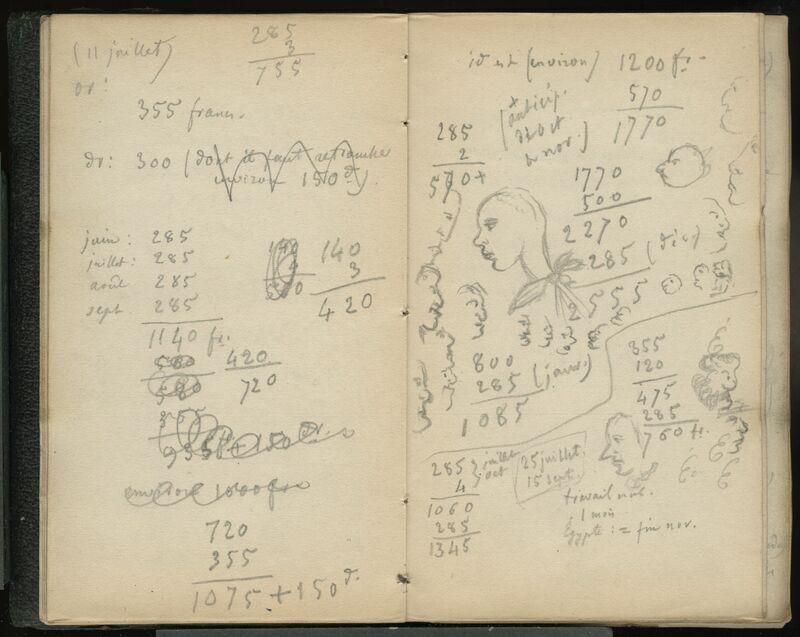 (11 juillet)
285
3
755
or:
355 francs.
dr: 300 (dont il faut retrancher
environ 150 d.)
juin: 285
juillet: 285
août 285
sept 285
1140 fr.
140
3
420
580
580
420
720
355
955 + 150 dr.
environ 1000 frs
720
355
1075 + 150 d.
id est (environ) 1200 fr.
570
1770
(x anticip.
d'oct
et nov.)
285
2
570 +
1770
500
2270
285 (déc)
2555
800
285 (janv.)
1085
355
120
475
285
760 fr.
285 } juillet
oct
4
1060
285
1345
25 juillet.
15 sept.
travail
1 mois
Egypte: = fin nov.